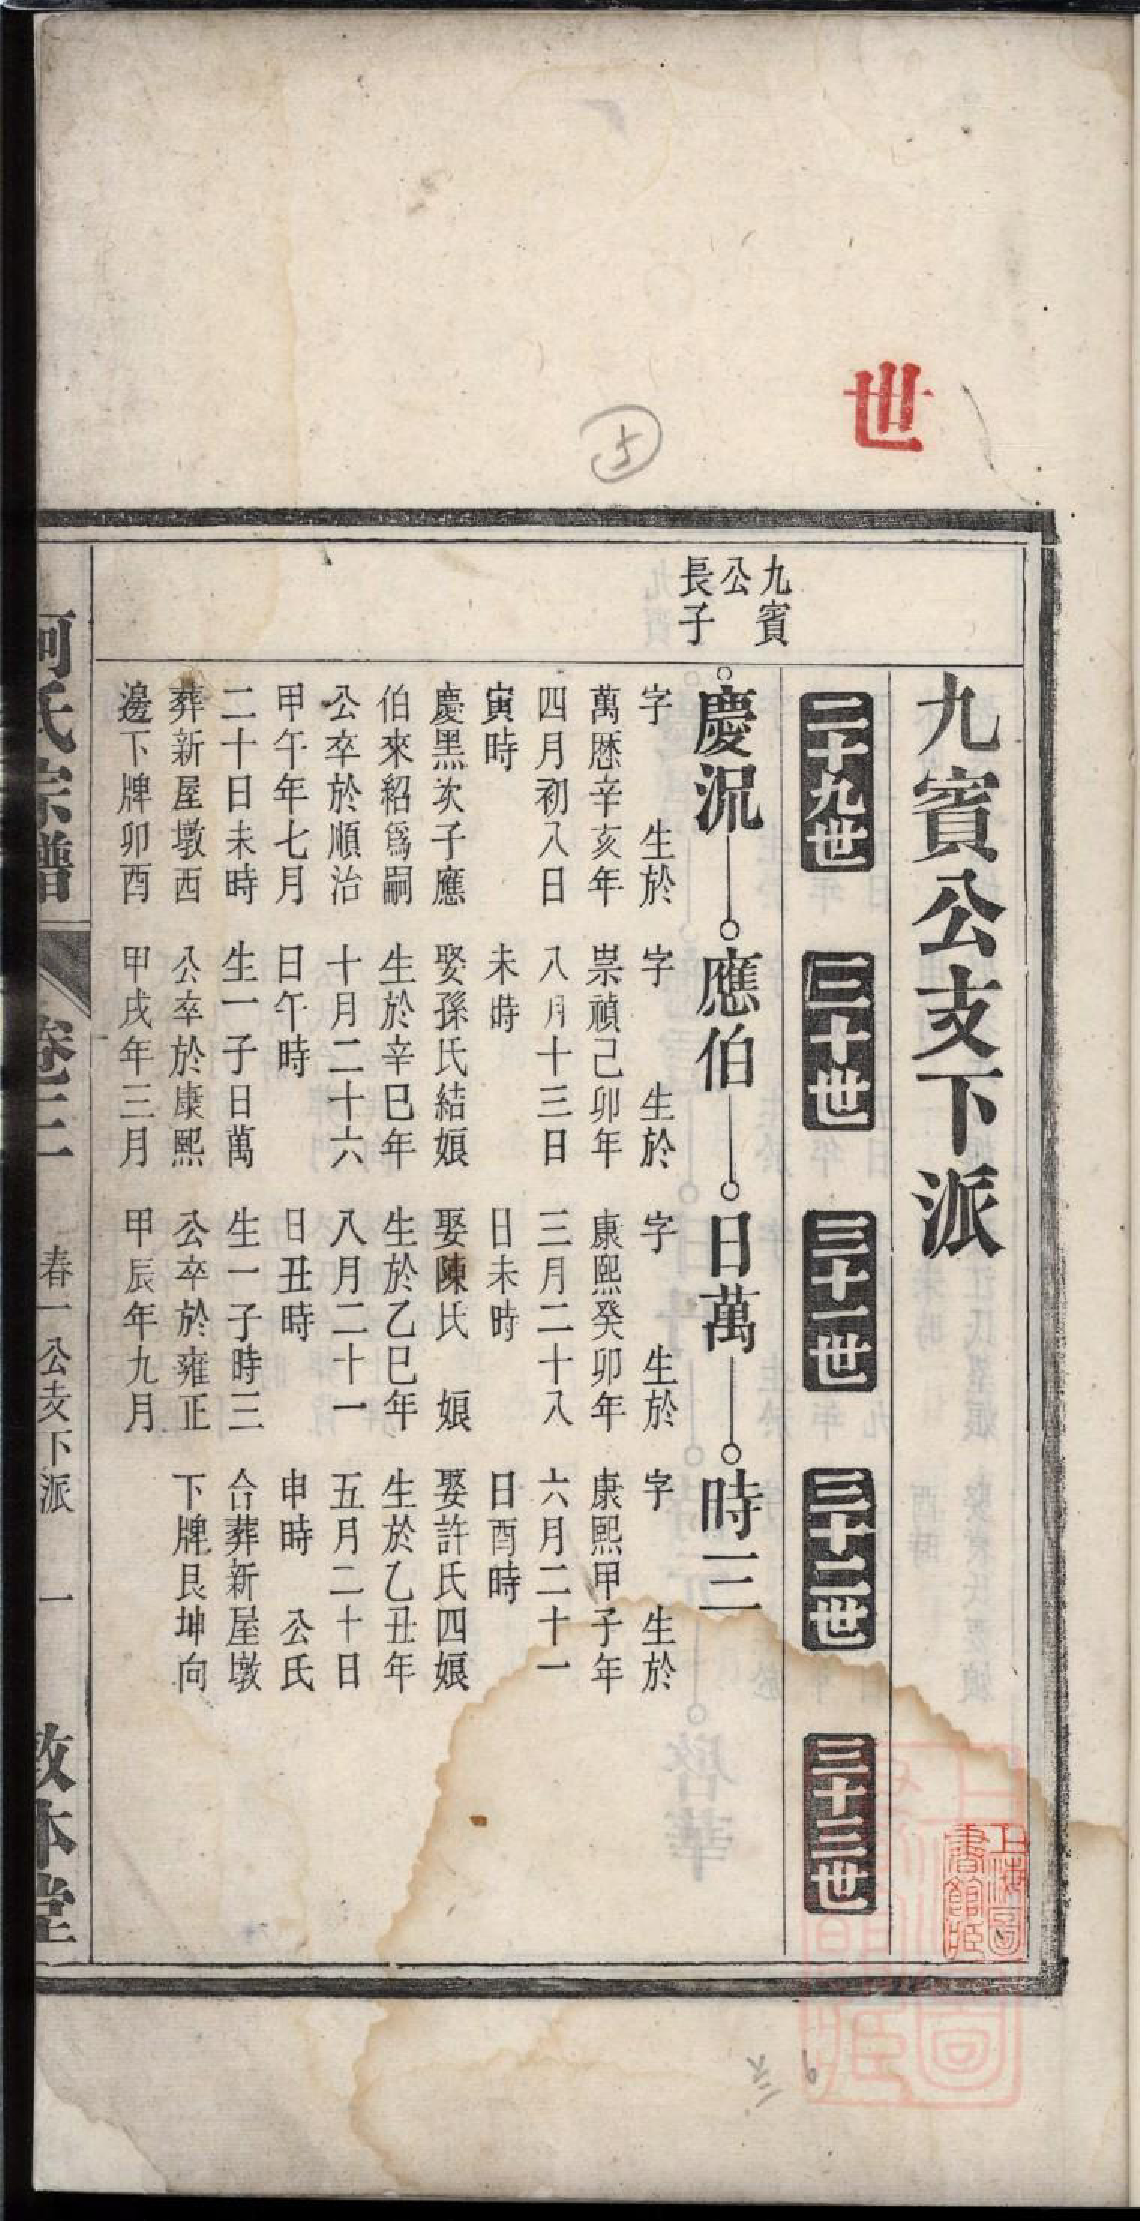 世
5
九賓公支下派
二十九世
三十世
三十一世
三十二世
三十三世
九賓
公
長子
慶況
應伯
日萬
時三
字　生於
萬歷辛亥年
四月初八日
寅時
慶黑次子應
伯來紹爲嗣
公卒於順治
甲午年七月
二十日未時
葬新屋墩西
邊下牌卯酉
字　生於
崇禎己卯年
八月十三日
未時
娶孫氏結娘
生於辛巳年
十月二十六
日午時
生一子日萬
公卒於康熙
甲戌年三月
字　生於
康熙癸卯年
三月二十八
日未時
娶陳氏　娘
生於乙巳年
八月二十一
日丑時
生一子時三
公卒於雍正
甲辰年九月
字　生於
康熙甲子年
六月二十一
日酉時
娶許氏四娘
生於乙丑年
五月二十日
申時　公氏
合葬新屋墩
下牌艮坤向
氏宗譜
卷二
春一公支下派
一
敦本堂
上海圖
書館